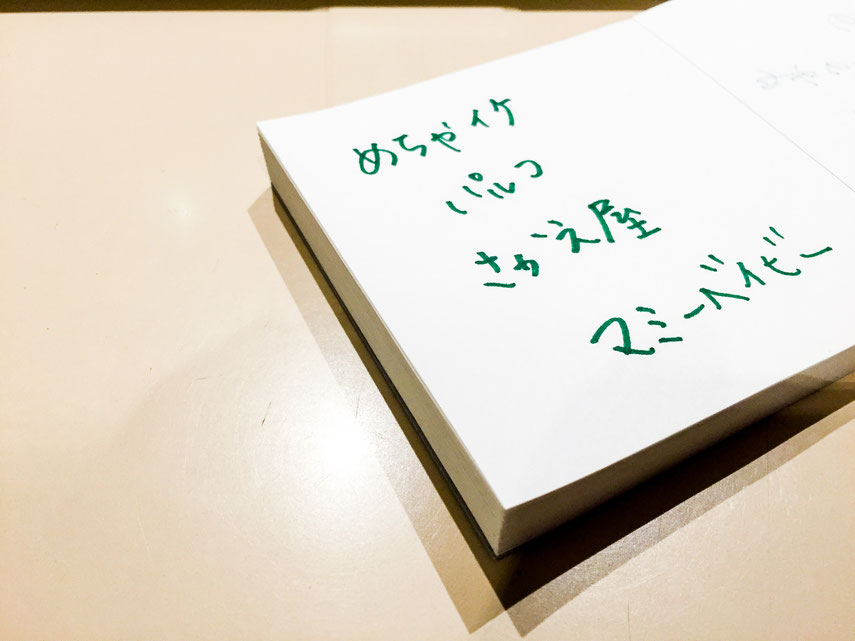 めちゃイケ
パルコ
さがえ屋
マミーベイビー